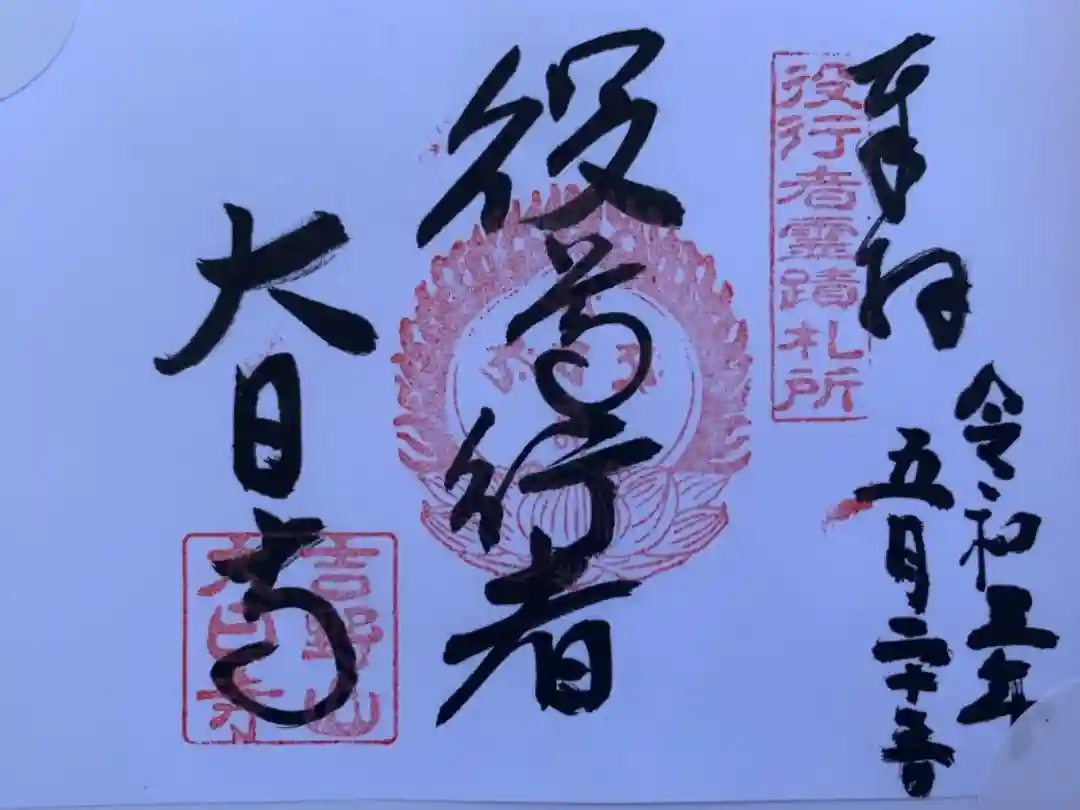 奉拝
令和 年
五月二十
役行者靈蹟札所
役 行者
大日寺
吉野山
大日寺